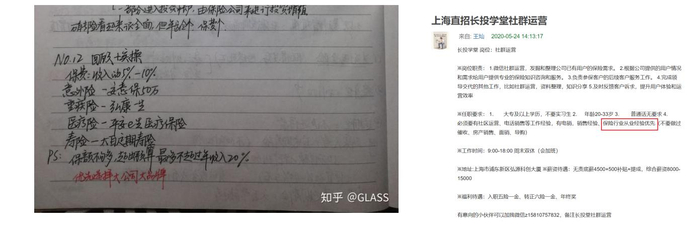 No.12 国际大药
保费:收入的5%-10%
意外险—安意保50万
重疾险—弘康一生
医疗险—平安e生医疗保险
寿险—大白定期寿险
PS:保额不够,超出预算最多不超过年收入20%
知乎 @GLASS
上海直招长投学堂社群运营
来自: 王灿 2020-05-24 14:13:17
长投学堂 岗位:社群运营
※岗位职责: 1.微信社群运营,发掘和整理公司已有用户的保险需求。 2.根据公司提供的用户情况
和需求给用户提供专业的保险知识咨询和服务。 3.负责参保客户的后续客户服务工作。 4.完成领
导交代的其他工作,比如社群运营,资料整理,知识分享 5.及时反馈客户诉求,提升用户体验和运
营效率
※任职要求: 1. 大专及以上学历,不要实习生 2. 年龄20-33岁 3. 普通话无要求 4.
必须要有社区运营、电话销售等工作经验,有电销、销售经验,保险行业从业经验优先(不要做过
催收、房产销售、直销、导购)
※工作时间:9:00-18:00 周末双休 (会加班)
※地址:上海市浦东新区弘源科创大厦 ※薪资待遇:无责底薪4500+500补贴+提成,综合薪资8000-
15000
※福利待遇:入职五险一金、转正六险一金、年终奖
有意向的小伙伴可以加微信z15810757832,备注长投学堂社群运营